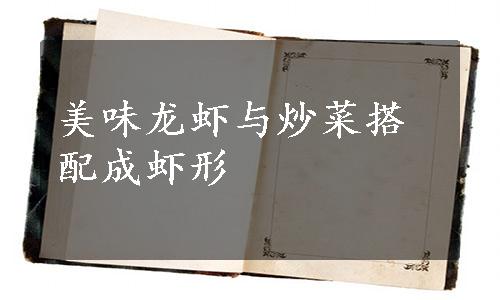 美味龙虾与炒菜搭
配成虾形